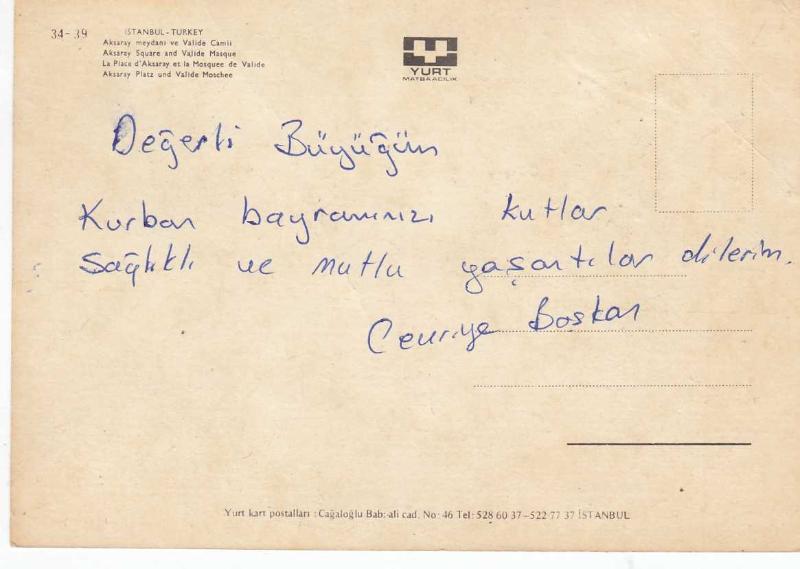 34-39
İSTANBUL - TURKEY
Aksaray meydanı ve Valide Camii
Aksaray Square and Valide Masque
La Place d'Aksaray et la Mosquee de Valide
Aksaray Platz und Valide Moschee
YURT
MATBAACILIK
Değerli Büyüğüm
Kurban bayramınızı kutlar
Sağlıklı ve mutlu yaşantılar dilerim.
Cevriye Boskan
Yurt kart postalları : Cağaloğlu Babı-ali cad. No: 46 Tel: 528 60 37-522 77 37 İSTANBUL